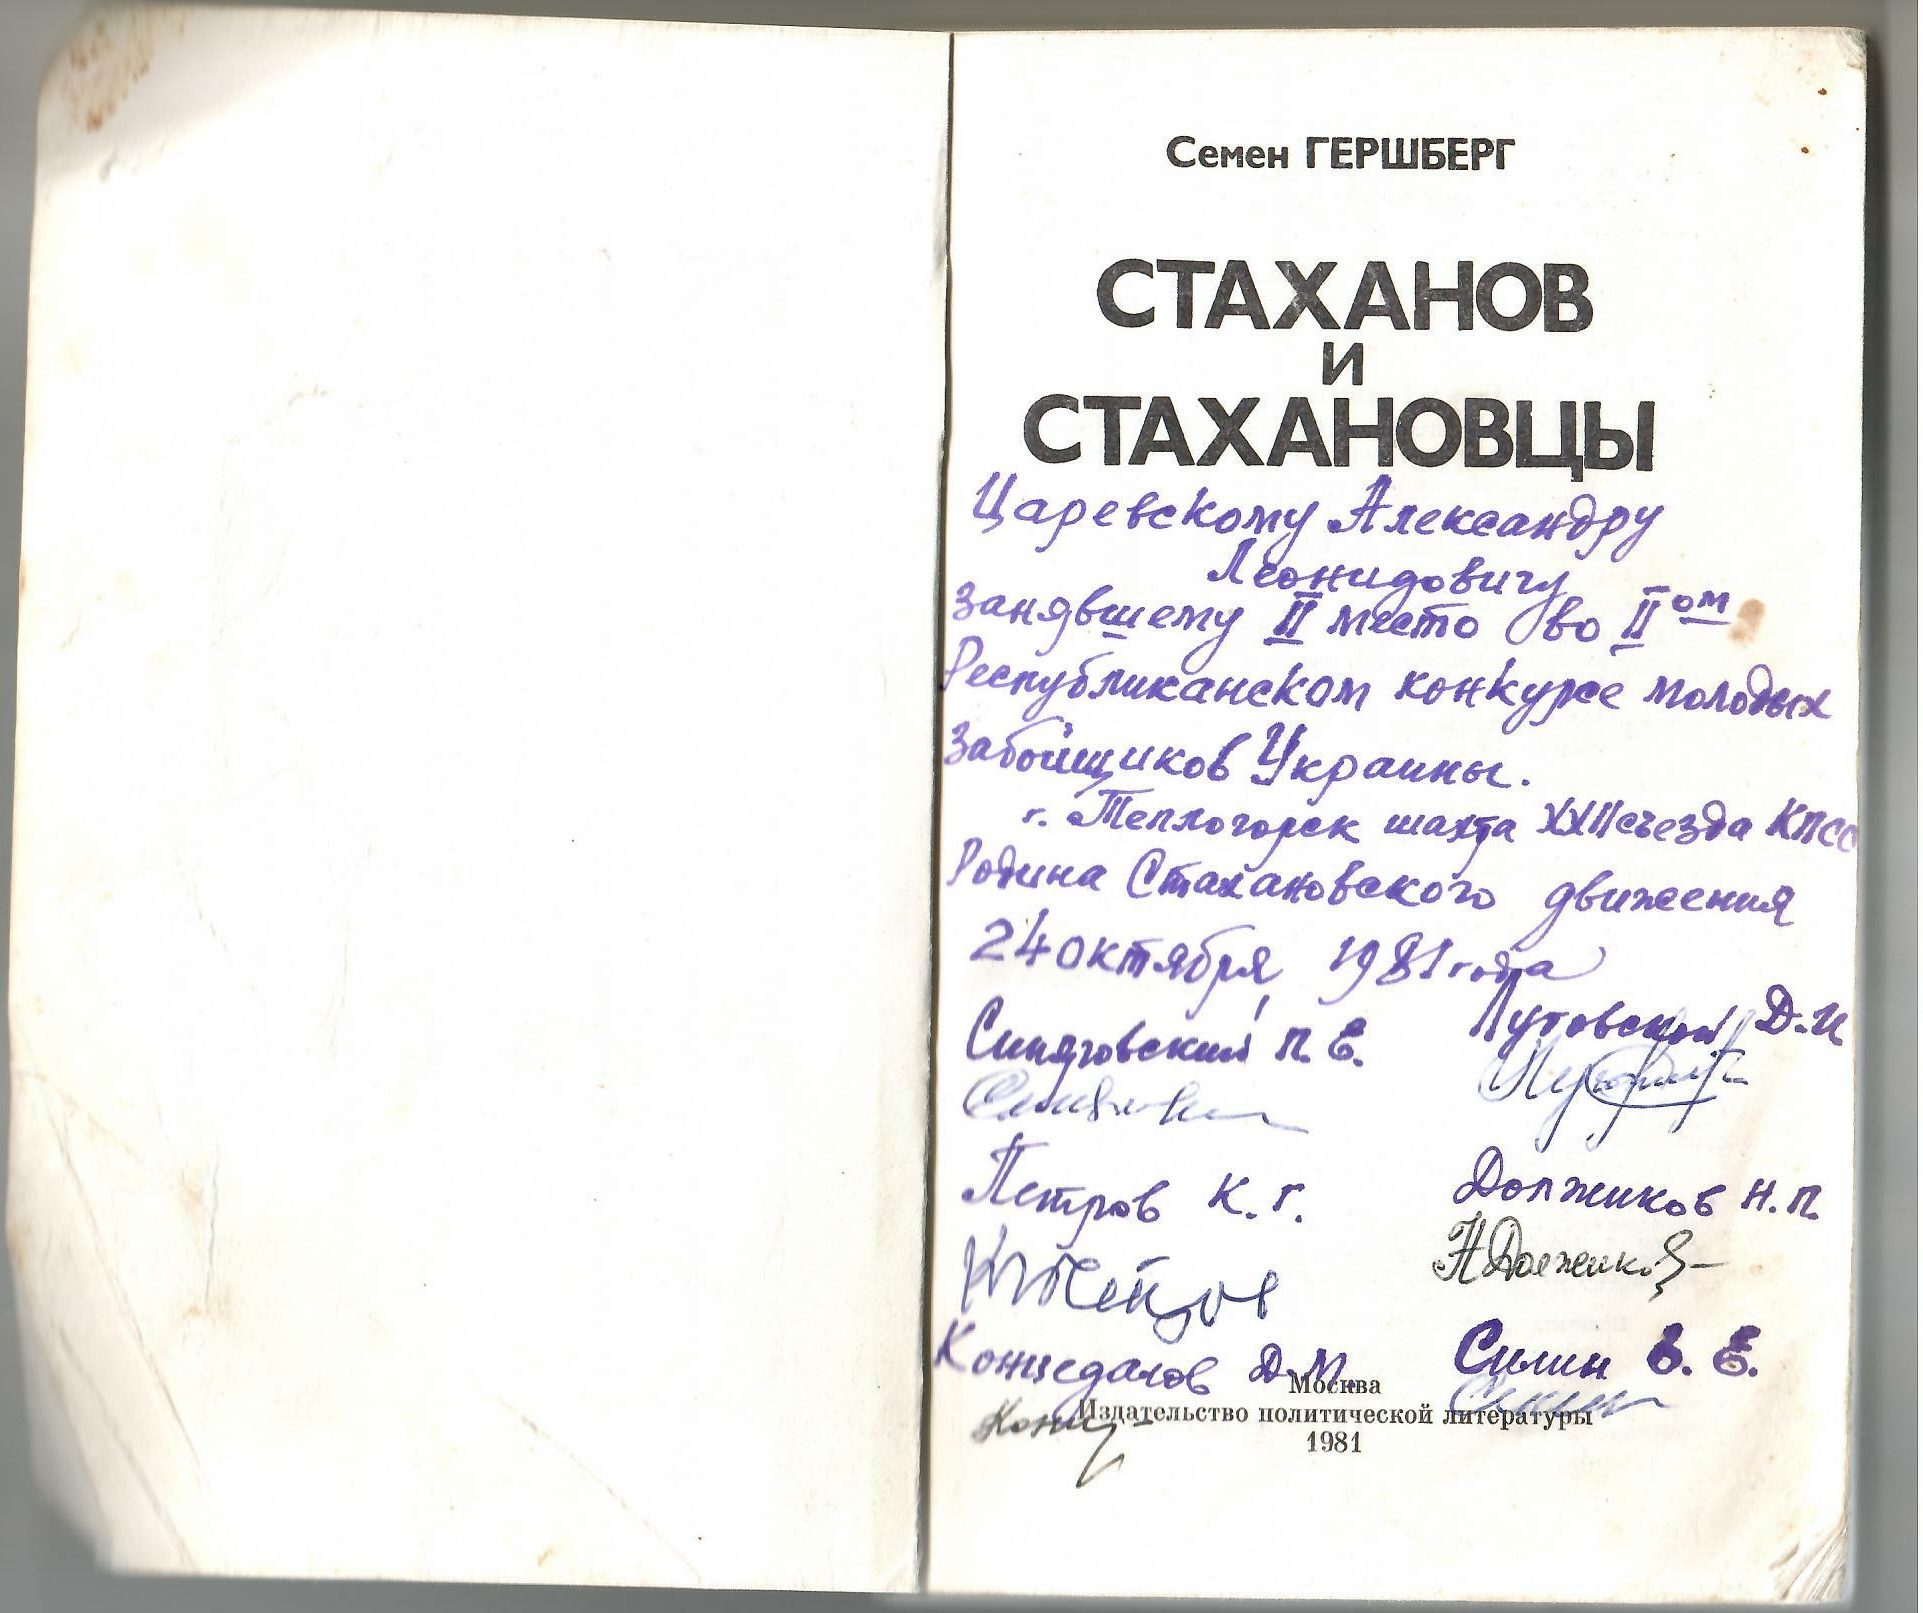 Семен ГЕРШБЕРГ
СТАХАНОВ
И
СТАХАНОВЦЫ
Царевскому Александру
Леонидовичу
занявшему II место во II ом
Республиканском конкурсе молодых
забойщиков Украины.
г. Теплогорск шахта XXII съезда КПСС
Родина Стахановского движения
24 октября 1981 года
Синяговский П. Е. Д. И
Петров К. Г. Должиков Н. П.
К Петров Н Должиков
Д. М. Силин В. Е.
Москва
Издательство политической литературы
1981